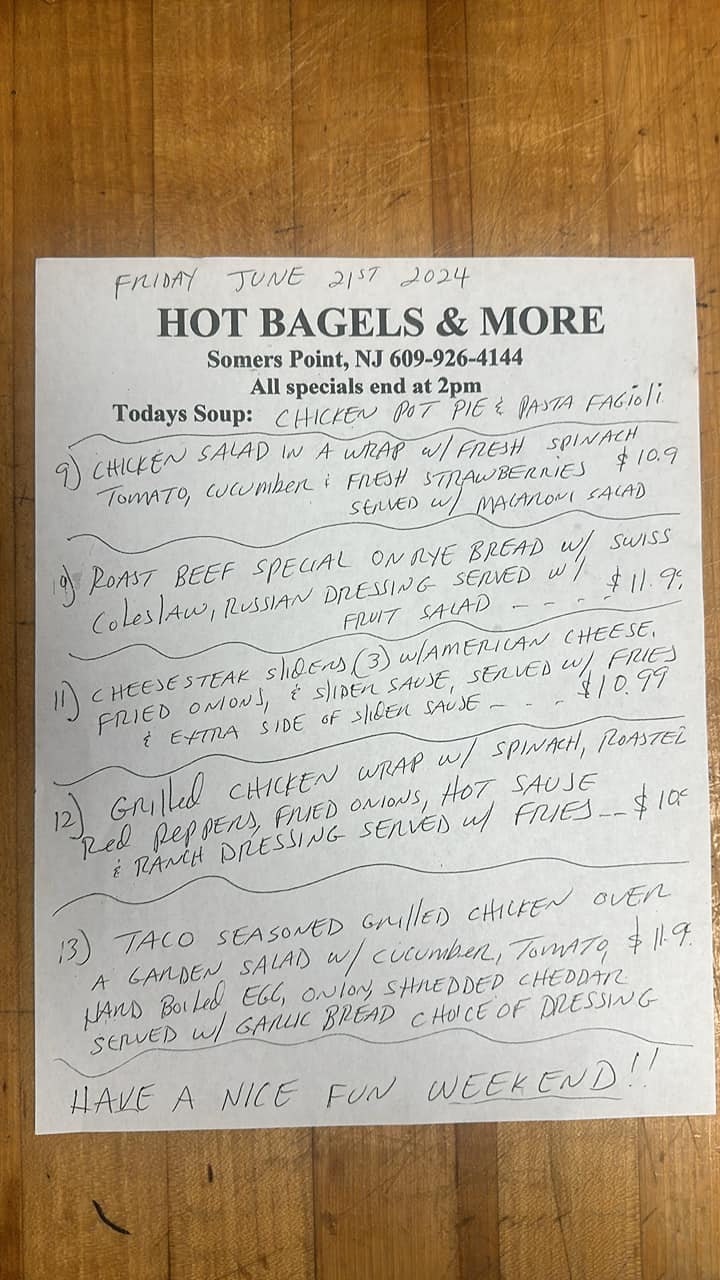 FRIDAY JUNE 21ST 2024
HOT BAGELS & MORE
Somers Point, NJ 609-926-4144
All specials end at 2pm
Todays Soup: CHICKEN POT PIE & PASTA FAGioli
9) CHICKEN SALAD IN A WRAP W/ FRESH SPINACH
TOMATO, CUCUMBER & FRESH STRAWBERRIES $10.9
SERVED W/ MACARONI SALAD
ROAST BEEF SPECIAL ON RYE BREAD W/ SWISS
COLESLAW, RUSSIAN DRESSING SERVED W/ $11.9
FRUIT SALAD - - - -
11) CHEESESTEAK SLIDERS (3) W/ AMERICAN CHEESE,
FRIED ONIONS, & SLIDER SAUSE, SERVED W/ FRIES
& EXTRA SIDE OF SLIDER SAUSE - - - $10.99
12) GRILLED CHICKEN WRAP W/ SPINACH, ROASTED
RED PEPPERS, FRIED ONIONS, HOT SAUSE
& RANCH DRESSING SERVED W/ FRIES -- $10
13) TACO SEASONED GRILLED CHICKEN OVER
A GARDEN SALAD W/ CUCUMBER, TOMATO, $11.9
HARD BOILED EGG, ONION, SHREDDED CHEDDAR
SERVED W/ GARLIC BREAD CHOICE OF DRESSING
HAVE A NICE FUN WEEKEND!!